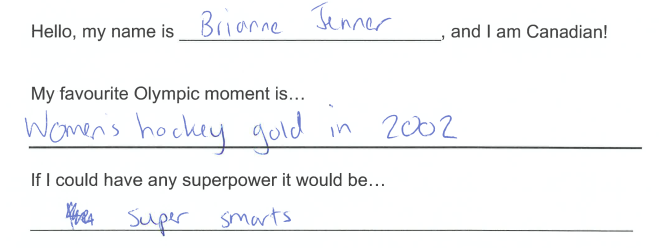 Hello, my name is Brianne Jenner, and I am Canadian!
My favourite Olympic moment is...
Women's hockey gold in 2002
If I could have any superpower it would be...
super smarts